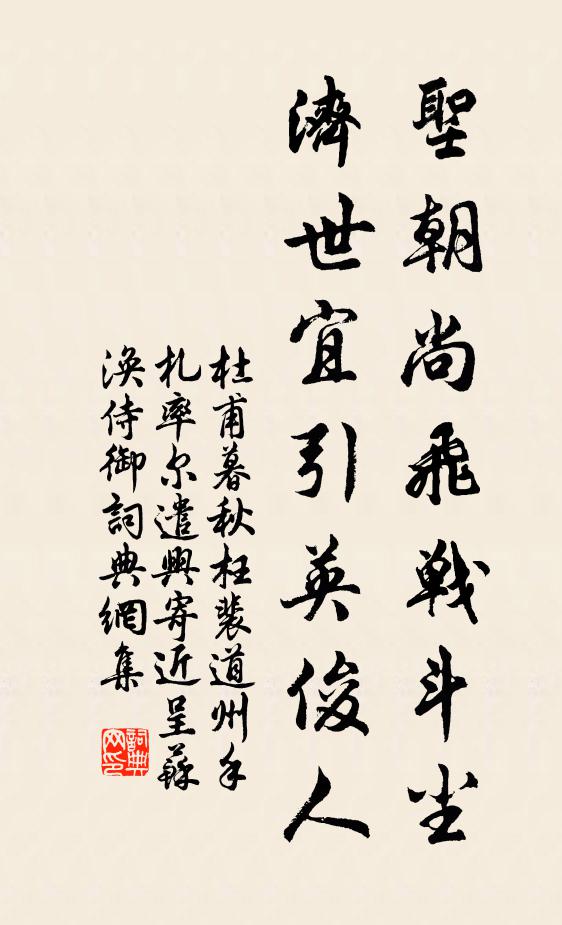 聖朝尚飛戦斗尘
濟世宜引英俊人
杜甫暮秋枉裴道州手
札率尔遣興寄近呈蘇
渙侍御詞典網集
詞典
网印